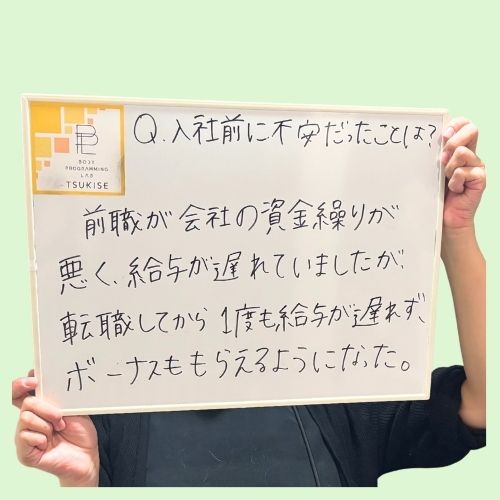 Q.入社前に不安だったことは?
BODY
PROGRAMMING
LAB
TSUKISE
前職が会社の資金繰りが
悪く、給与が遅れていましたが、
転職してから1度も給与が遅れず、
ボーナスももらえるようになった。